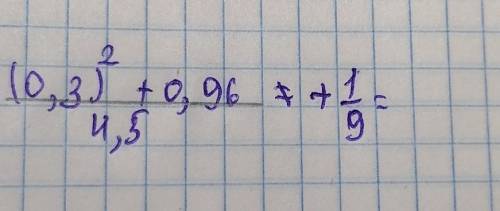 (0,3)² + 0,96 + 1/9 =
4,5